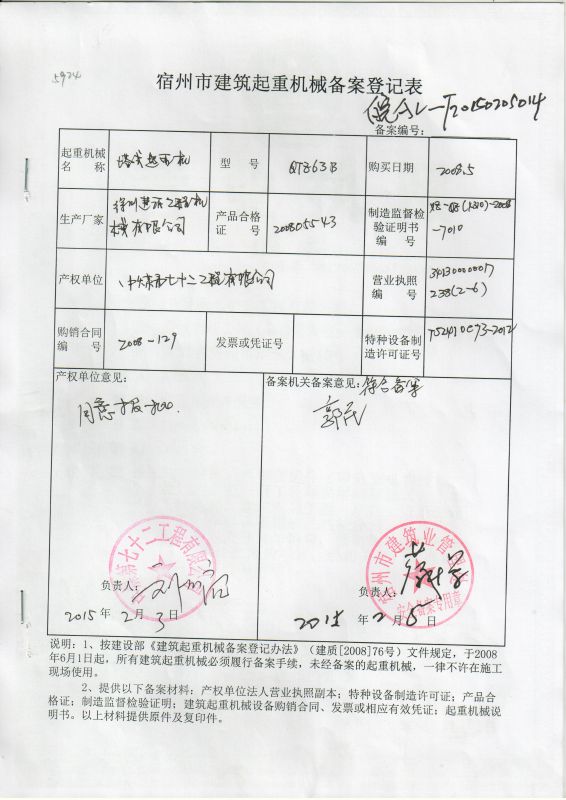 5924
宿州市建筑起重机械备案登记表
皖合L-T20150205014
备案编号：
起重机械名 称 塔式起重机 型 号 QTZ63B 购买日期 2008.5
生产厂家 徐州建筑工程机械有限公司 产品合格证 号 20080554-3 制造监督检验证明书编 号 -7010
产权单位 中煤第七十二工程有限公司 营业执照编 号 34130000017238(2-6)
购销合同编 号 2008-129 发票或凭证号 特种设备制造许可证号
产权单位意见：
同意
备案机关备案意见：符合备案
郭民
第七十二工程有限公司
宿州市建筑业管理
安全备案专用章
负责人：
2015 年 2 月 3 日
负责人：
2015 年 2 月 5 日
说明：1、按建设部《建筑起重机械备案登记办法》（建质[2008]76号）文件规定，于2008
年6月1日起，所有建筑起重机械必须履行备案手续，未经备案的起重机械，一律不许在施工
现场使用。
2、提供以下备案材料：产权单位法人营业执照副本；特种设备制造许可证；产品合
格证；制造监督检验证明；建筑起重机械设备购销合同、发票或相应有效凭证；起重机械说
明书。以上材料提供原件及复印件。